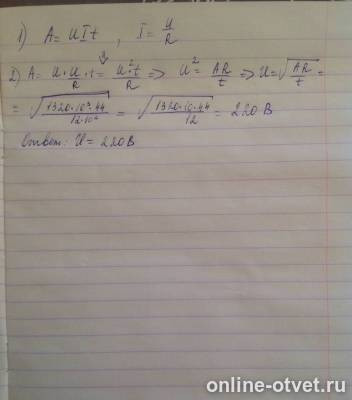 1) A = UIt , I = U/R
2) A = U·U/R·t = U²·t/R => U² = AR/t => U = √(AR/t) =
= √(1320·10³·44/12·10²) = √(1320·10·44/12) = 220 В
Ответ: U = 220 В
online-otvet.ru